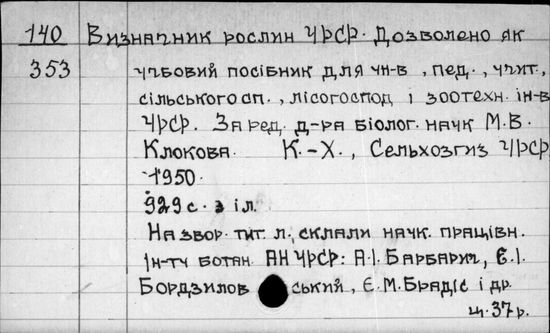 140 Визначник рослин УРСР. Дозволено як
353 учбовий посібник для ун-в, пед., учит.,
сільського сп., лісогоспод і зоотехн. ін-в
УРСР. За ред. д-ра біолог. наук М.В.
Клокова. К.-Х., Сельхозгиз УРСР
1950.
929 с. з іл.
На звор. тит. л.: склали наук. працівн.
Ін-ту ботан. АН УРСР: А.І. Барбарич, Є.І.
Бордзилов ський, Є.М. Брадіс і др.
ц. 37 р.